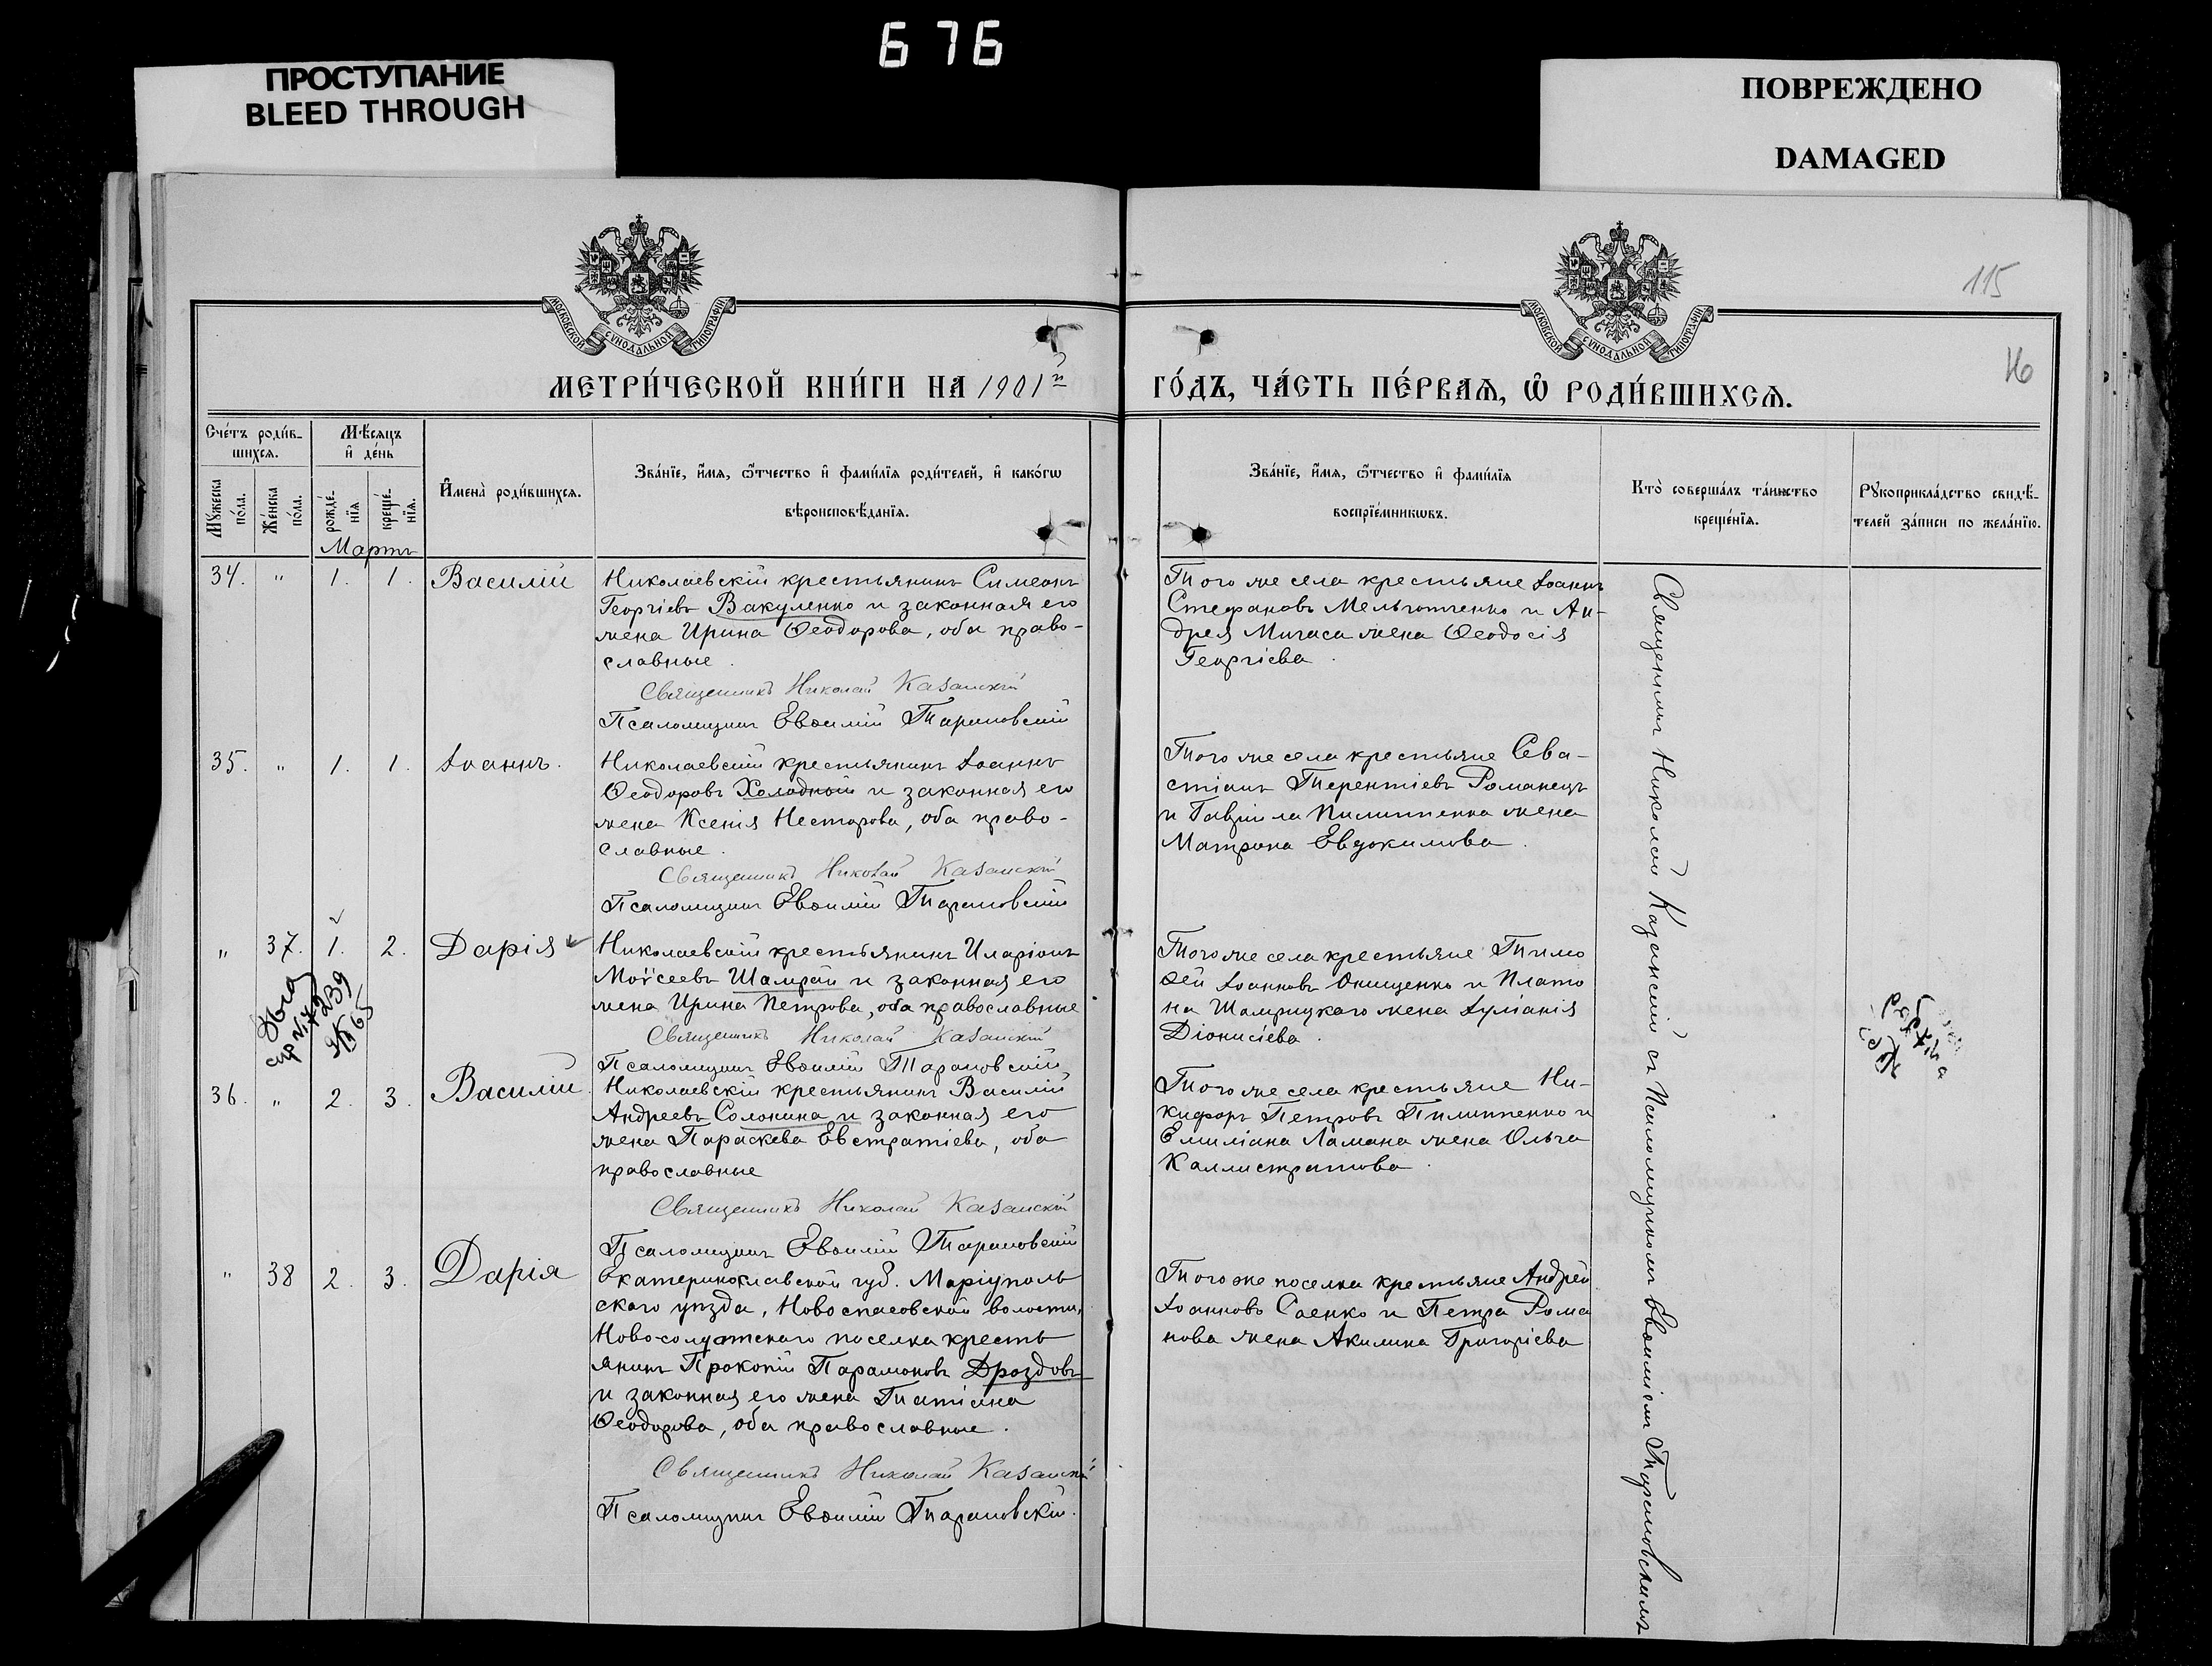 676
ПРОСТУПАНИЕ
BLEED THROUGH
ПОВРЕЖДЕНО
DAMAGED
115
МОСКОВСКОЙ СѴНОДАЛЬНОЙ ТИПОГРАФІИ
МОСКОВСКОЙ СѴНОДАЛЬНОЙ ТИПОГРАФІИ
МЕТРИ́ЧЕСКОЙ КНИ́ГИ НА 1901й
ГО́ДЪ, ЧА́СТЬ ПЕ́РВАѦ, Ѽ РОДИ́ВШИХСѦ.
Сче́тъ роди́в-
шихсѧ.
Мꙋ́жеска по́ла.
Же́нска по́ла.
Мѣ́сѧцъ
и҆ де́нь
рожде́-
нїѧ
креще́-
нїѧ.
И҆мена̀ роди́вшихсѧ.
Зва́нїе, и҆́мѧ, ѻ҆́тчество и҆ фами́лїѧ роди́телей, и҆ како́гѡ
вѣроисповѣ́данїѧ.
Зва́нїе, и҆́мѧ, ѻ҆́тчество и҆ фами́лїѧ
воспрїе́мникѡвъ.
Кто̀ соверша́лъ та́инство
креще́нїѧ.
Рꙋкоприкла́дство свидѣ́-
телей за́писи по жела́нїю.
Мартъ
34. " 1. 1. Василій
Николаевскій крестьянинъ Симеонъ
Георгіевъ Вакуленко и законная его
жена Ирина Ѳеодорова, оба право-
славные.
Священникъ Николай Казанскій
Псаломщикъ Евѳимій Тарановскій
Того же села крестьяне Іоаннъ
Стефановъ Мельниченко и Ан-
дрея Мигаса жена Ѳеодосія
Георгіева.
35. " 1. 1. Іоаннъ.
Николаевскій крестьянинъ Іоаннъ
Ѳеодоровъ Холодный и законная его
жена Ксенія Несторова, оба право-
славные.
Священникъ Николай Казанскій
Псаломщикъ Евѳимій Тарановскій
Того же села крестьяне Сева-
стіанъ Терентіевъ Романецъ
и Гавріила Пилипенка жена
Матрона Евдокимова.
" 37. 1. 2. Дарія
Николаевскій крестьянинъ Иларіонъ
Моѵсеевъ Шамрай и законная его
жена Ирина Петрова, оба православные
Священникъ Николай Казанскій
Псаломщикъ Евѳимій Тарановскій
Того же села крестьяне Тимо
ѳей Іоанновъ Онищенко и Плато
на Шамрицкаго жена Іуліанія
Діонисіева.
36. " 2. 3. Василій
Николаевскій крестьянинъ Василій
Андреевъ Солонина и законная его
жена Параскева Евстратіева, оба
православные
Священникъ Николай Казанскій
Псаломщикъ Евѳимій Тарановскій
Того же села крестьяне Ни-
кифоръ Петровъ Пилипенко и
Емиліана Ламана жена Ольга
Каллистратова.
" 38 2. 3. Дарія
Екатеринославской губ. Маріуполь
скаго уѣзда, Новоспасовской волости,
Ново-солдатскаго поселка кресть
янинъ Прокопій Парамоновъ Дроздовъ
и законная его жена Татіана
Ѳеодорова, оба православные.
Священникъ Николай Казанскій
Псаломщикъ Евѳимій Тарановскій.
Того же поселка крестьяне Андрей
Іоанновъ Саенко и Петра Рома
нова жена Акилина Григоріева
Священникъ Николай Казанскій съ Псаломщикомъ Евѳиміемъ Тарановскимъ